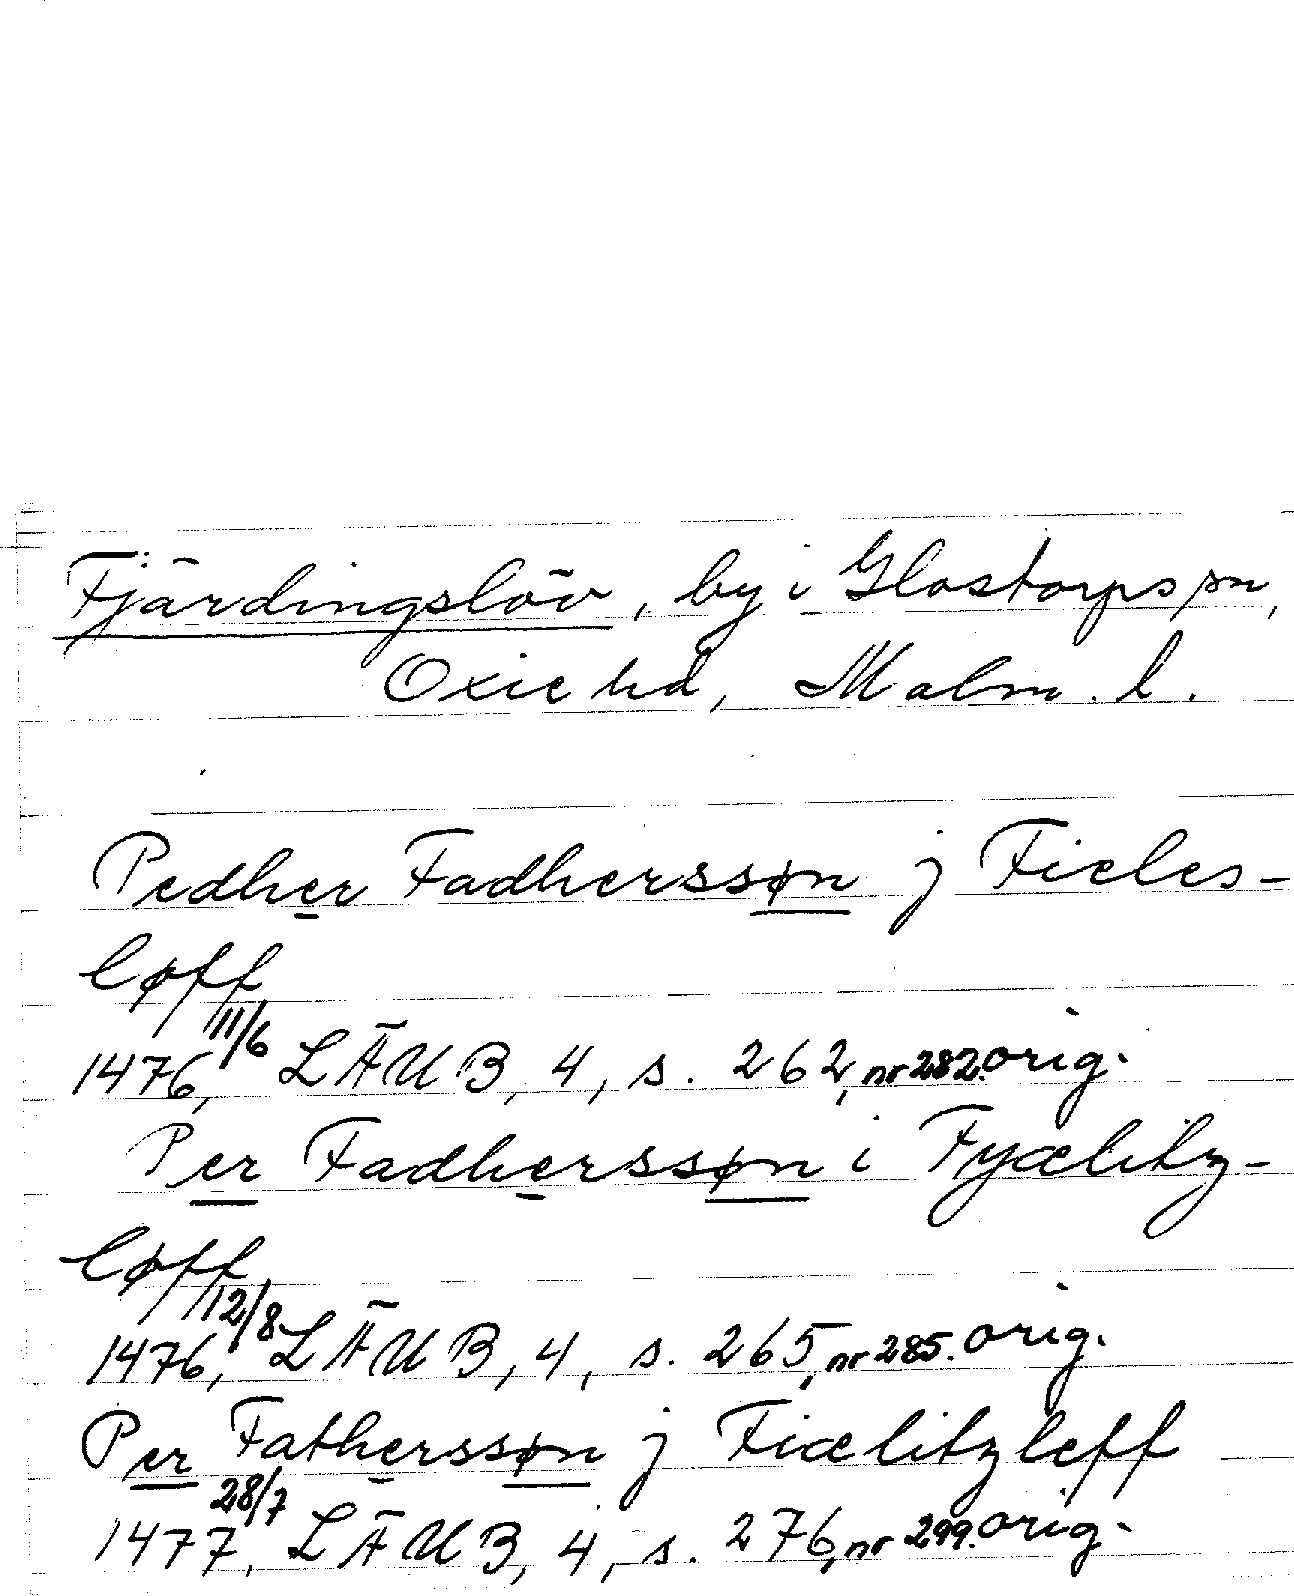 Fjärdingslöv, by i Glostorps sn,
Oxie hd, Malm. l.
Pedher Fadherssøn j Fieles-
løff
1476, 11/6 LÄUB, 4, s. 262, nr 282. orig.
Per Fadherssøn i Fyælitz-
løff
1476, 12/8 LÄUB, 4, s. 265, nr 285. orig.
Per Fatherssøn j Fiælitzleff
1477, 28/7 LÄUB, 4, s. 276, nr 299. orig.